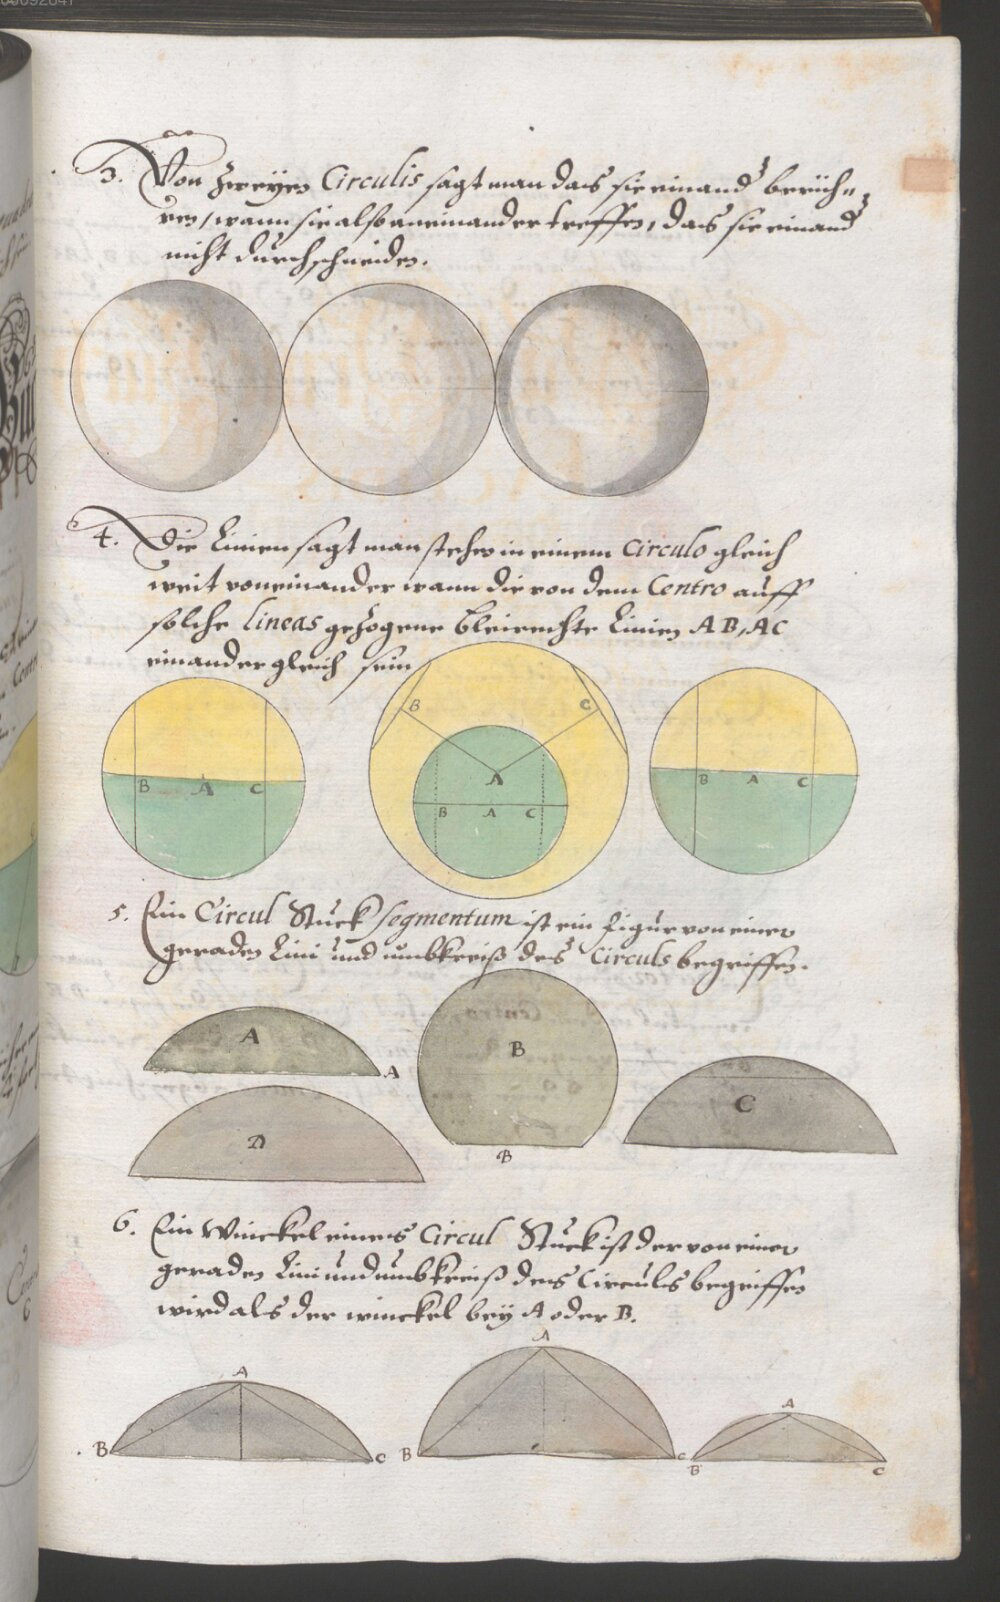 3. Von zweyen Circulis sagt man das sie einand berüh=
ren, wann sie also aneinander treffen, das sie einand
nicht durchschneiden.
4. Die Linien sagt man stehen in einem Circulo gleich
weit voneinander wann die von dem Centro auff
solche lineas gezogene bleirechte Linien AB, AC
einander gleich sein
B C
A
B A C
B A C
B A C
5. Ein Circul Stuck segmentum ist ein figur von einer
geraden Lini und umbkreiß des Circuls begriffen.
A
A
B
B
C
D
6. Ein Winckel eines Circul Stuck ist der von einer
geraden Lini und umbkreiß des Circuls begriffen
wird als der winckel bey A oder B.
A
B C
A
B C
A
B C